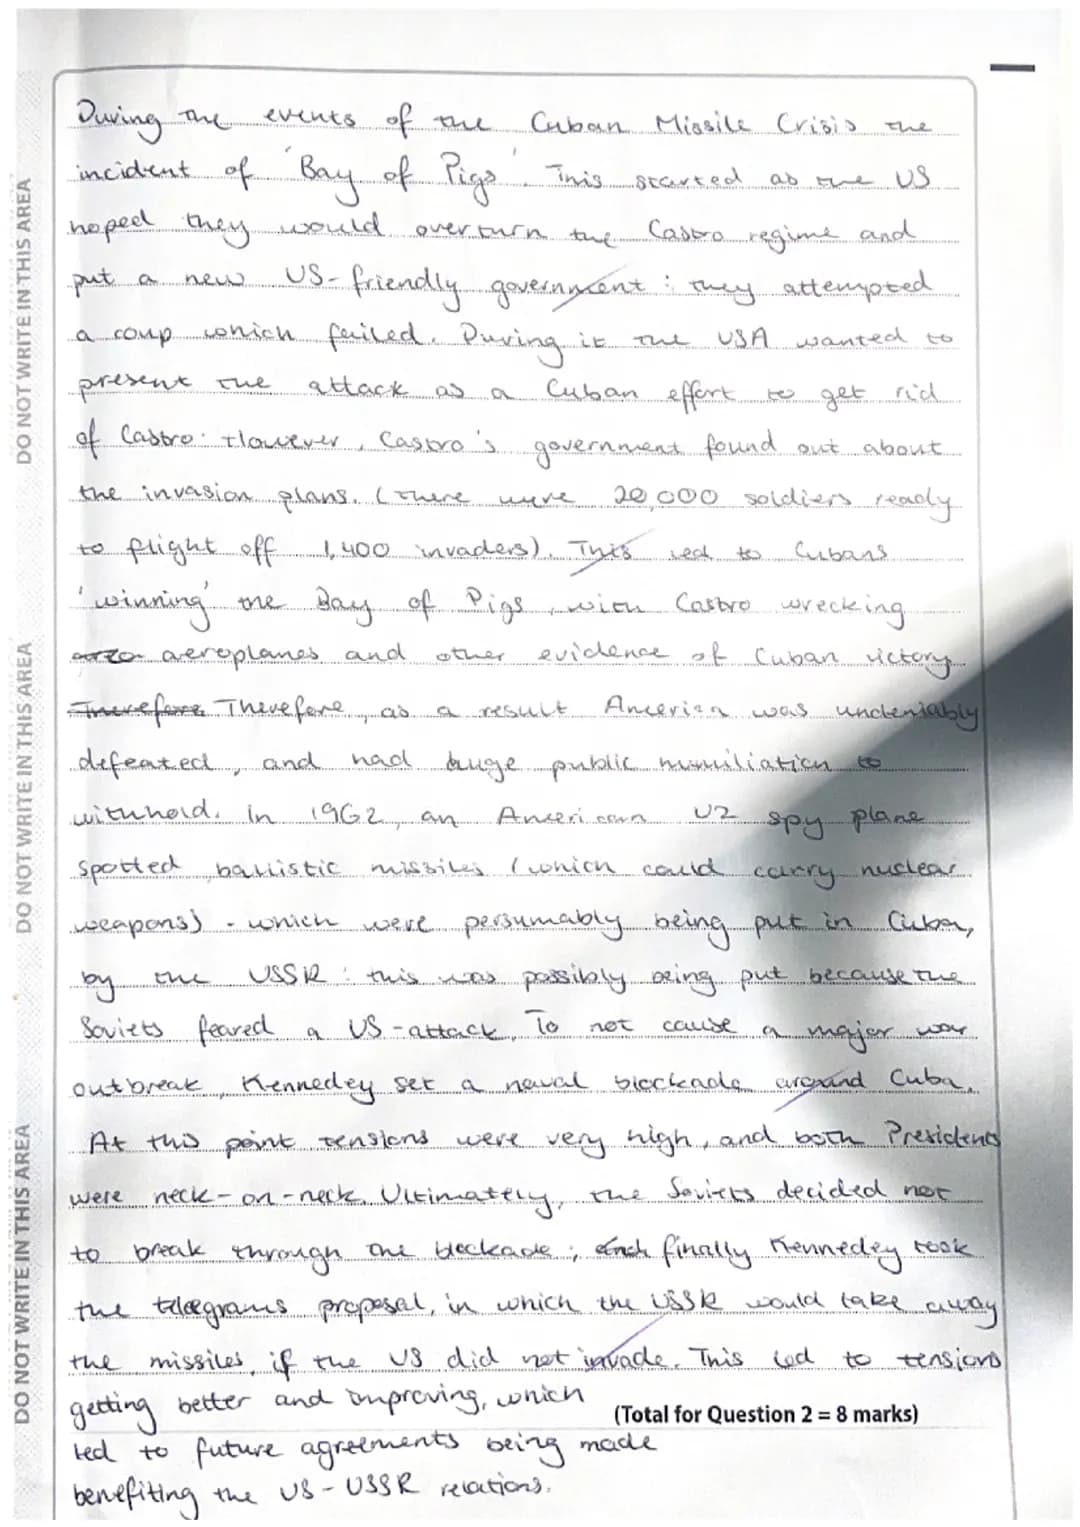 During the events of the Cuban Missile Crisis the
incident of 'Bay of Pigs'. This started as the US
hoped they would overturn the Castro regime and
put a new US-friendly government ; they attempted
a coup which failed. During it the USA wanted to
present the attack as a Cuban effort to get rid
of Castro. However, Castro's government found out about
the invasion plans. (There were 20,000 soldiers ready
to flight off 1,400 invaders). This led to Cubans
'winning' the Bay of Pigs, with Castro wrecking
aeroplanes and other evidence of Cuban victory.
Therefore Therefore, as a result America was undeniably
defeated, and had huge public humiliation to
withhold. In 1962, an American U2 spy plane
spotted ballistic missiles (which could carry nuclear
weapons) - which were persumably being put in Cuba,
by the USSR : this was possibly being put because the
Soviets feared a US-attack. To not cause a major war
outbreak, Kennedey set a naval blockade around Cuba.
At this point tensions were very high, and both Presidents
were neck-on-neck. Ultimately, the Soviets decided not
to break through the blockade ; finally Kennedey took
the telegrams proposal, in which the USSR would take away
the missiles, if the US did not invade. This led to tensions
getting better and improving, which
(Total for Question 2 = 8 marks)
led to future agreements being made
benefiting the US-USSR relations.
DO NOT WRITE IN THIS AREA
DO NOT WRITE IN THIS AREA
DO NOT WRITE IN THIS AREA